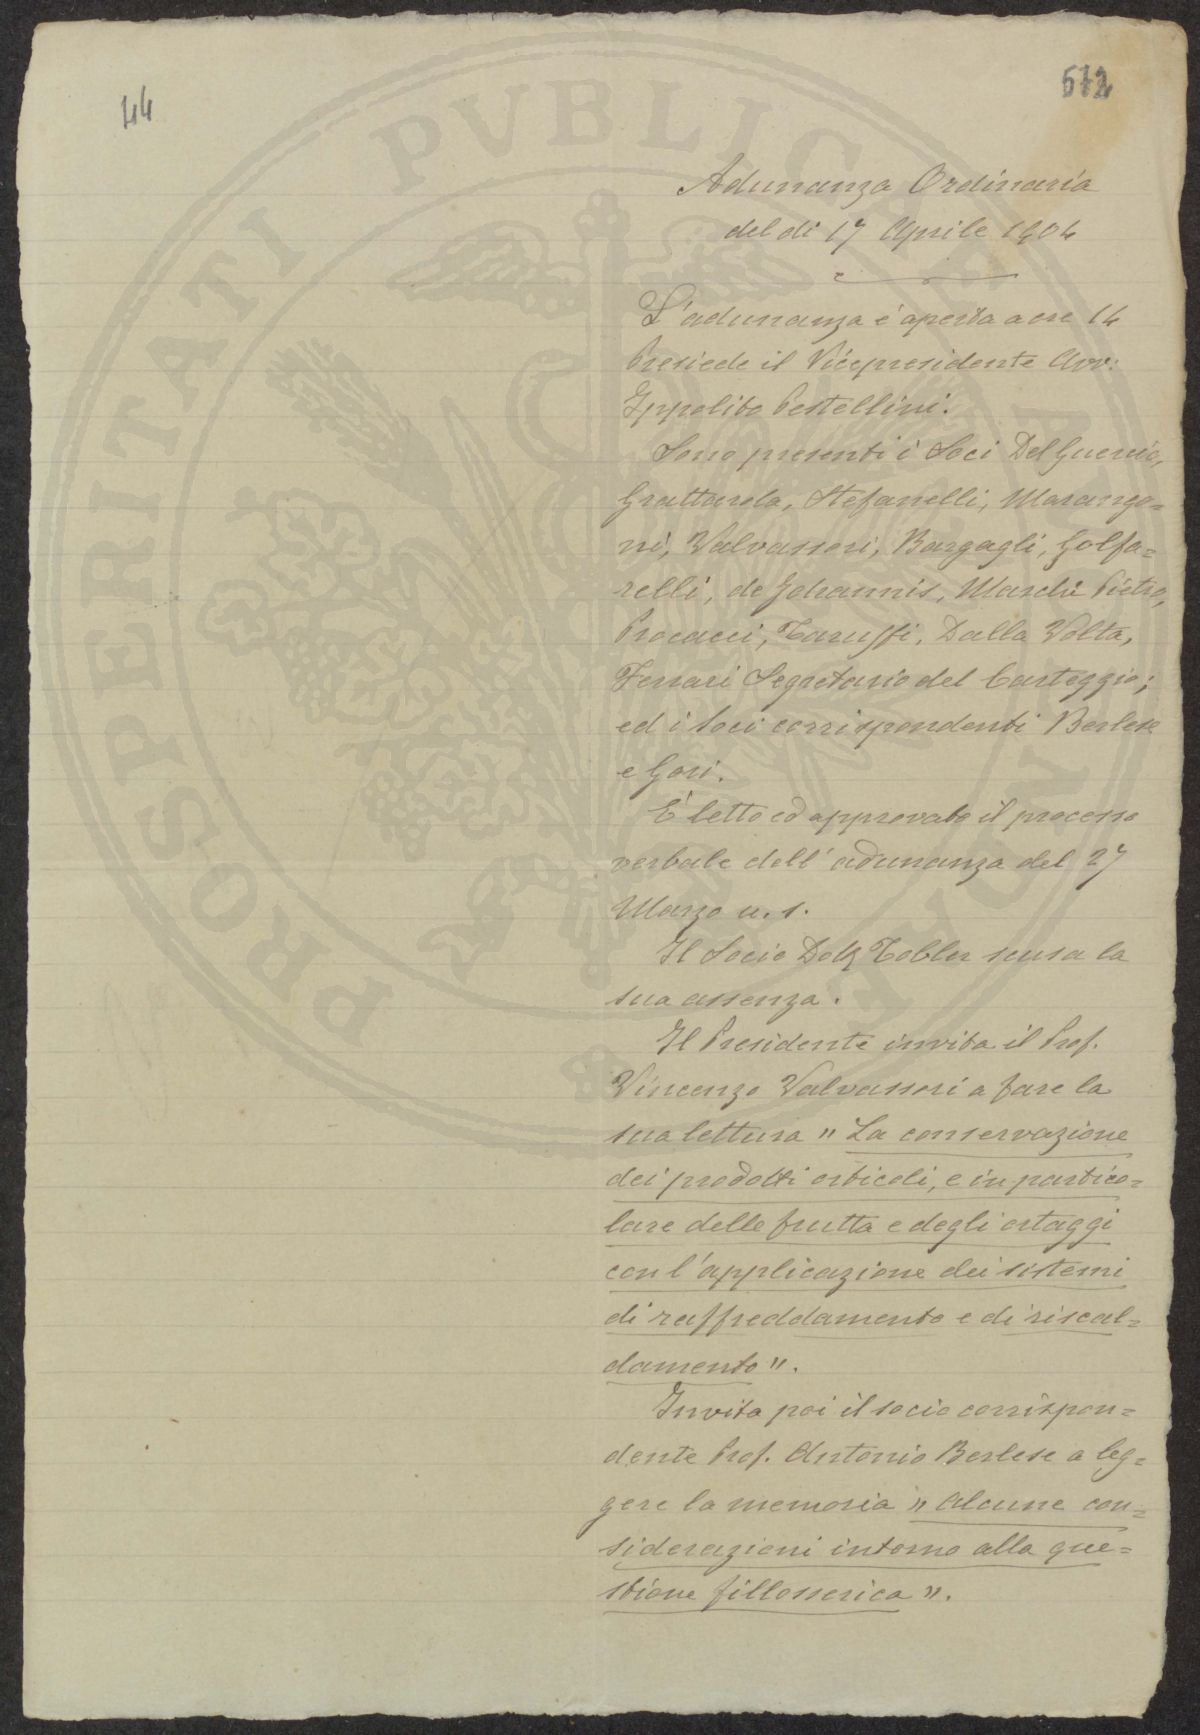 44
672
Adunanza Ordinaria
del dì 17 Aprile 1904
L'adunanza è aperta a ore 14
Presiede il Vicepresidente Avv:
Ippolito Pestellini.
Sono presenti i Soci Del Guercio,
Grattarola, Stefanelli, Marango=
ni, Valvassori, Bargagli, Golfa=
relli, de Johannis, Marchi Pietro,
Procacci, Taruffi, Dalla Volta,
Ferrari Segretario del Carteggio;
ed i Soci corrispondenti Berlese
e Gori.
È letto ed approvato il processo
verbale dell'adunanza del 27
Marzo u. s.
Il Socio Tobler scusa la
sua assenza.
Il Presidente invita il Prof.
Vincenzo Valvassori a fare la
sua lettura " La conservazione
dei prodotti orticoli, e in partico=
lare delle frutta e degli ortaggi
con l'applicazione dei sistemi
di raffreddamento e di riscal=
damento ".
Invita poi il socio corrispon=
dente Prof. Antonio Berlese a leg=
gere la memoria " Alcune con=
siderazioni intorno alla que=
stione fillosserica ".
PROSPERITATI PVBLICAE AVGENDAE